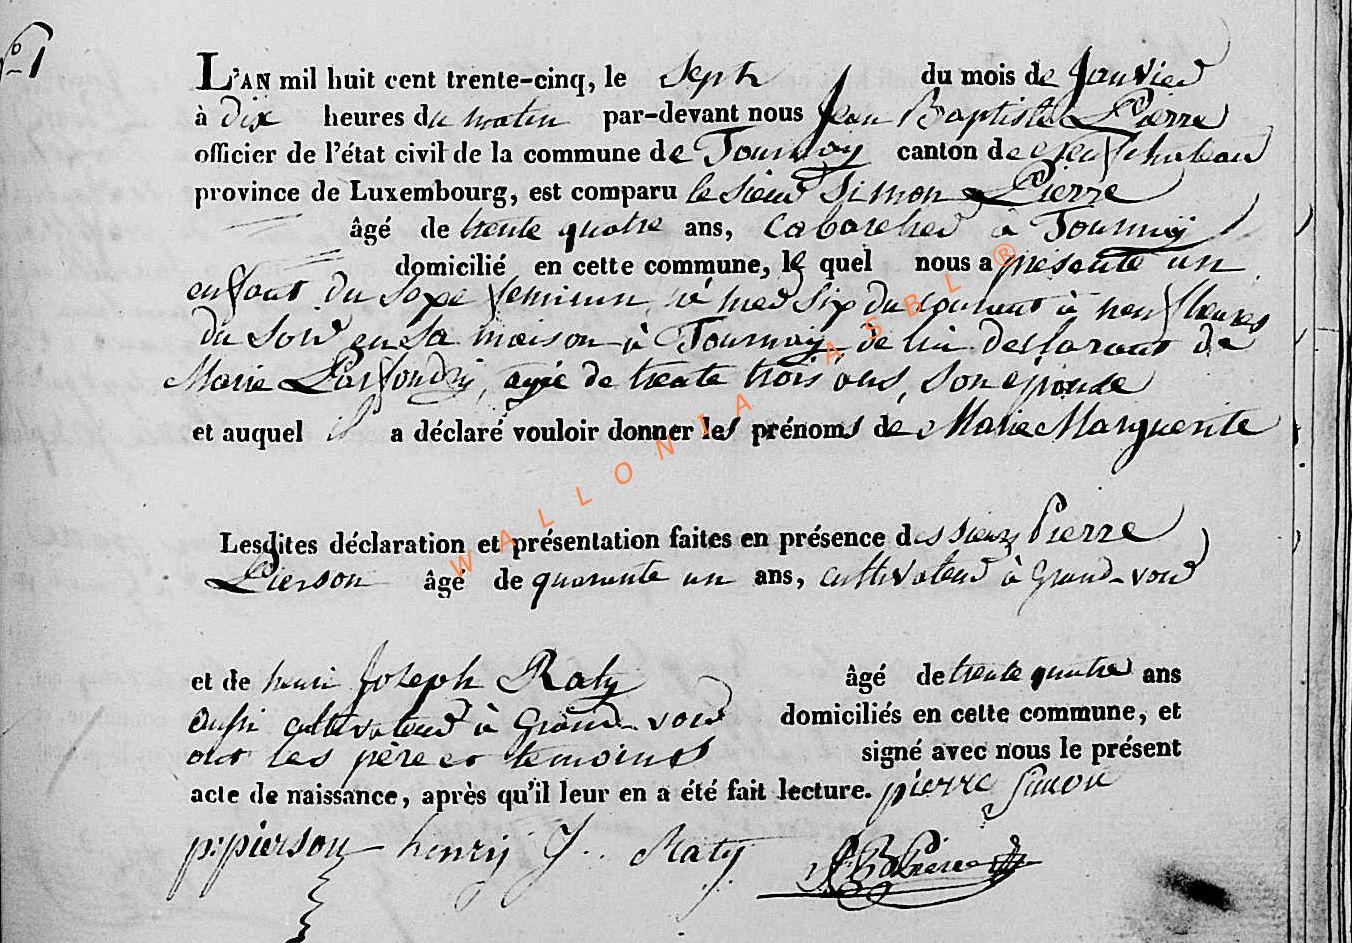 No 1
L'AN mil huit cent trente-cinq, le Sept du mois de Janvier
à dix heures du matin par-devant nous Jean Baptiste Pierre
officier de l'état civil de la commune de Tournay canton de Neufchateau
province de Luxembourg, est comparu le sieur Simon Pierre
âgé de trente quatre ans, Cabaretier à Tournay
domicilié en cette commune, le quel nous a présenté un
enfant du sexe feminin né hier six du courant à neuf heures
du soir en sa maison à Tournay, de lui declarant & de
Marie Laffondry, agée de trente trois ans, son epouse
et auquel il a déclaré vouloir donner les prénoms de Marie Marguerite
Lesdites déclaration et présentation faites en présence des sieurs Pierre
Pierson âgé de quarante un ans, cultivateur à Grand-voir
et de henri Joseph Raty âgé de trente quatre ans
aussi cultivateur à Grand-voir domiciliés en cette commune, et
ont les père et temoins signé avec nous le présent
acte de naissance, après qu'il leur en a été fait lecture. pierre Simon
p: pierson henry J. Raty J B Pierre
WALLONIA ASBL ®